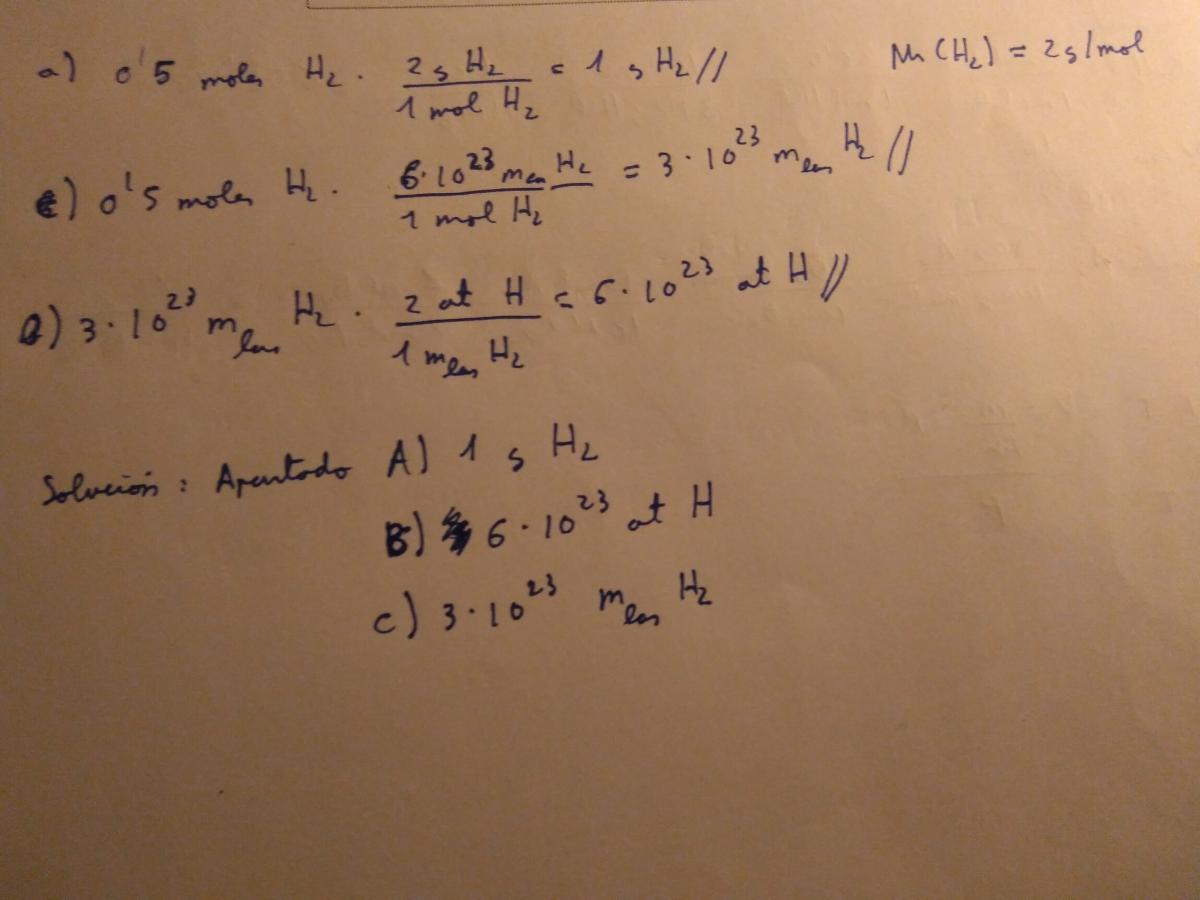 a) 0'5 moles H₂ · 2 g H₂ / 1 mol H₂ = 1 g H₂ // Mm (H₂) = 2 g/mol
c) 0'5 moles H₂ · 6·10²³ mlas H₂ / 1 mol H₂ = 3·10²³ mlas H₂ //
b) 3·10²³ mlas H₂ · 2 at H / 1 mlas H₂ = 6·10²³ at H //
Solución: Apartado A) 1 g H₂
B) 6·10²³ at H
C) 3·10²³ mlas H₂